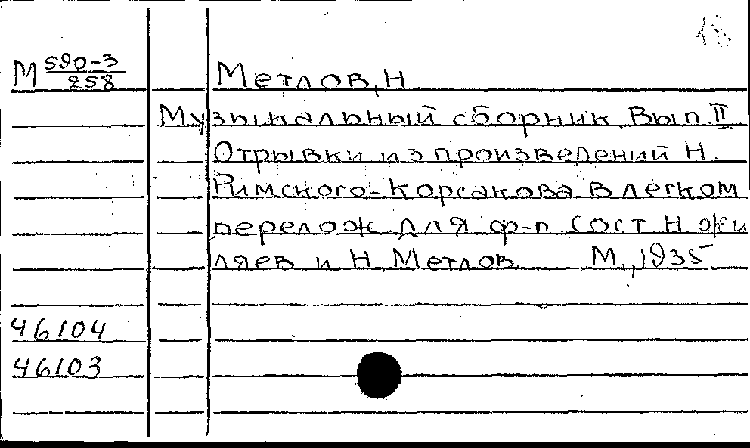 М 590-3/258
Метлов, Н
Музыкальный сборник. Вып. II
Отрывки из произведений Н.
Римского-Корсакова в легком
перелож для ф-п Сост Н Жи
ляев и Н Метлов М., 1935
46104
46103